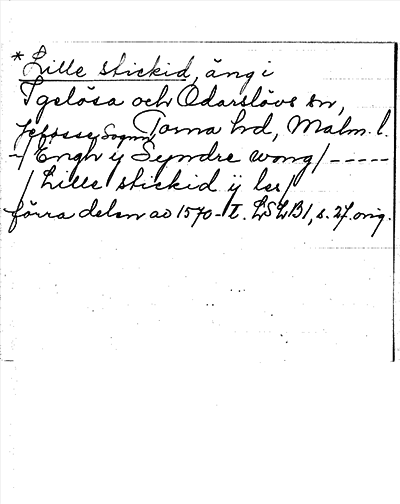 * Lille stickid, äng i
Igelösa och Odarslövs sn,
Torna hd, Malm. l.
-/ Engh ij Syndre wong / -----
/ Lille stickid ij les /
förra delen av 1570-t. LSLB 1, s. 27. orig.